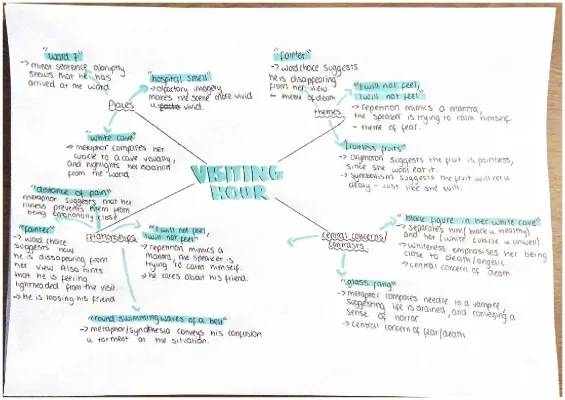 "ward 7"
→ minor sentence abruptly
shows that he has
arrived at the ward.
"hospital smell"
→ olfactory imagery
makes the scene more vivid
vivid.
Places
"white cave"
→ metaphor compares her
cubicle to a cave visually,
and highlights her isolation
from the world.
"fainter"
→ word choice suggests
he is disappearing
from her view
- theme of death
"I will not feel,
I will not feel"
→ repetition mimics a mantra,
the speaker is trying to calm himself.
- theme of fear.
themes
"fruitless fruits"
→ oxymoron suggests the fruit is pointless,
since she wont eat it.
→ symbolism suggests the fruit will rot &
decay - just like she will.
VISITING
HOUR
"distance of pain"
metaphor suggests that her
illness prevents them from
being emotionally close.
relationships
"fainter"
→ word choice
suggests how
he is dissapearing from
her view. Also hints
that he is feeling
lightheaded from the visit.
→ he is loosing his friend.
"I will not feel,
I will not feel"
→ repetition mimics a
mantra, the speaker is
trying to calm himself.
→ he cares about his friend.
"round swimming waves of a bell"
→ metaphor/synthesia conveys his confusion
& torment at the situation.
central concerns/
contrasts
"black figure in her white cave"
→ separates him (black & healthy)
and her (white cubicle & unwell)
→ whiteness emphasises her being
close to death/angelic.
→ central concern of death
"glass fang"
→ metaphor compares needle to a vampire
suggesting life is drained, and conveying a
sense of horror.
→ central concern of fear/death